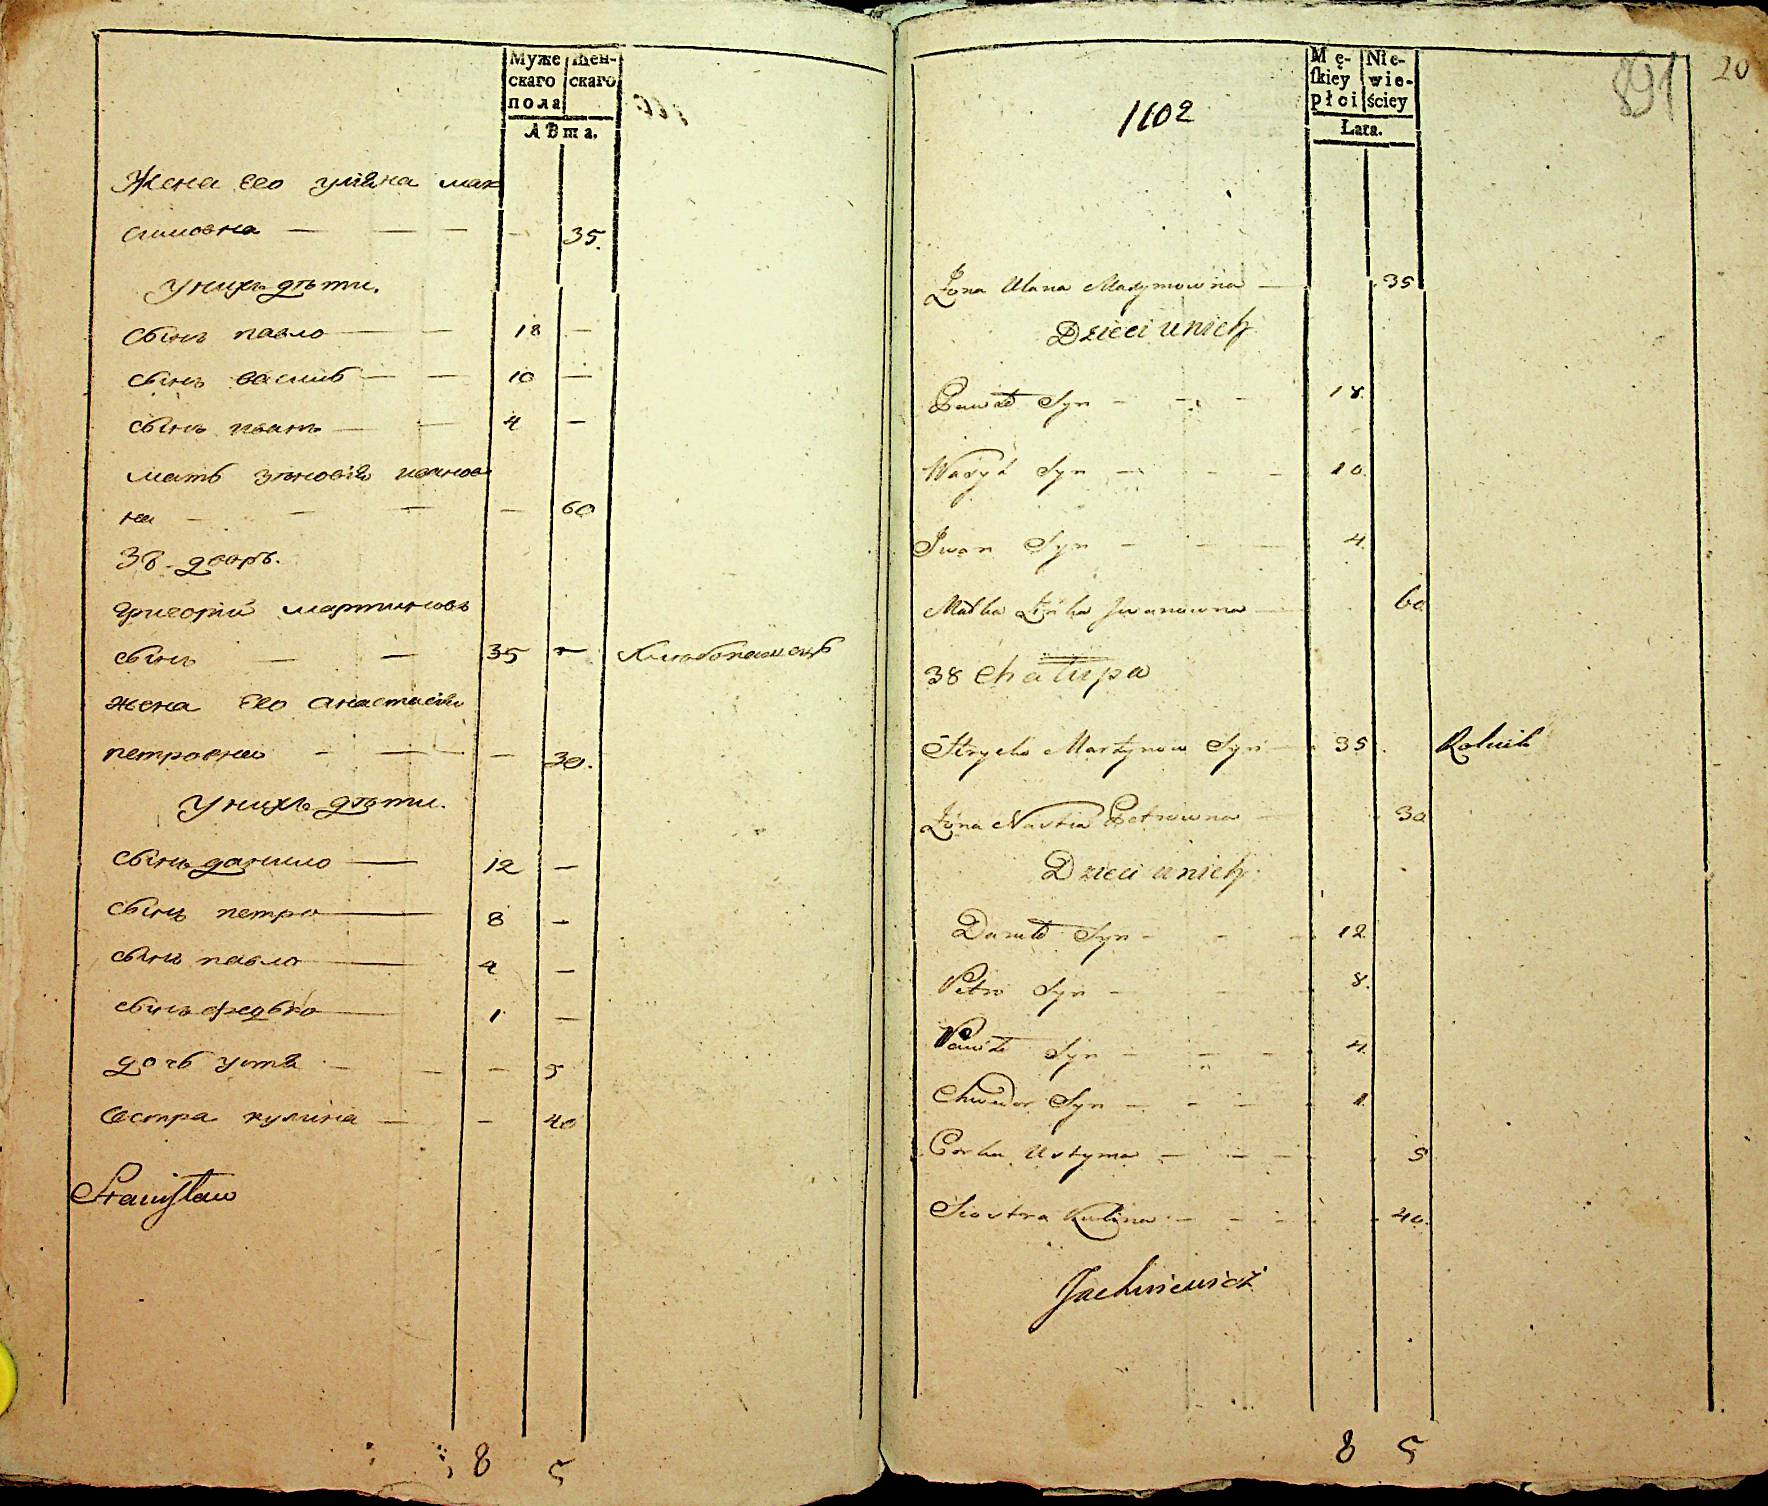 Муже Жен-
скаго скаго
пола
Лѣта.
Жена Его уліяна мак
симовна — — — — 35.
У нихъ дѣти.
Сынъ павло — — 18 —
сынъ василь — — 10 —
сынъ иванъ — — 4 —
мать зѣновія иванов
на — — — — 60
38 дворъ.
Григорій мартиновъ
сынъ — — 35 — Хлѣбопашецъ
жена Его анастасія
петровна — — — 30.
У нихъ дѣти.
Сынъ данило — 12 —
Сынъ петро — 8 —
сынъ павло — 4 —
сынъ федько — 1 —
дочь устя — — — 5
Сестра кулина — — 40
Stanisław
8 5
891 20
1102
Mę- Nie-
skiey wie-
płci ściey
Lata.
Żona Ulana Maxymowna — 35
Dzieci u nich
Pawło Syn — — — 18.
Wasyl Syn — — — 10.
Iwan Syn — — — 4.
Matka Iwanowna — 60
38 Chałupa
Hryćko Martynow Syn — 35. Rolnik
Żona Nastia Petrowna — 30
Dzieci u nich
Daniło Syn — — — 12.
Petro Syn — — — 8.
Pawło Syn — — — 4.
Chwedor Syn — — — 1.
Corka Ustyma — — — 5
Siostra Kulina — — — 40.
Jachniewicz
8 5